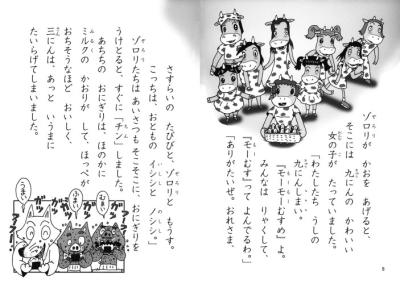 ゾロリが かおを あげると、
そこには 九にんの かわいい
女の子が たっていました。
「わたしたち うしの
九にんしまい。
『モーモーむすめ』よ。
みんなは りゃくして、
『モーむす』って よんでるわ。」
「ありがたいぜ。おれさま、
さすらいの たびびと、ゾロリと もうす。
こっちは、おともの イシシと ノシシ。」
ゾロリたちは あいさつも そこそこに、おにぎりを
うけとると、すぐに「チン」しました。
あちちの おにぎりは、ほのかに
ミルクの かおりが して、ほっぺが
おちそうなほど おいしく、
三にんは、あっと いうまに
たいらげてしまいました。
うまい
うまい
ガツ
ガツ
9